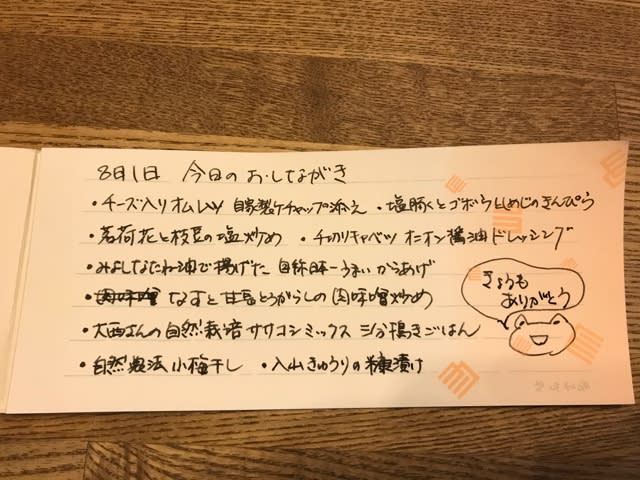 8月1日 今日のおしながき
・チーズ入りオムレツ 自家製ケチャップ添え ・塩豚くとゴボウとしめじのきんぴら
・茗荷花と枝豆の塩炒め ・千切りキャベツ オニオン醤油ドレッシング
・みよしなたね油で揚げた 自称日本一うまい からあげ
・なすと甘長とうがらしの肉味噌炒め
・大西さんの自然栽培ササコシミックス 三分搗きごはん
・自然農法 小梅干し ・入山きゅうりの糠漬け
きょうも
ありがとう